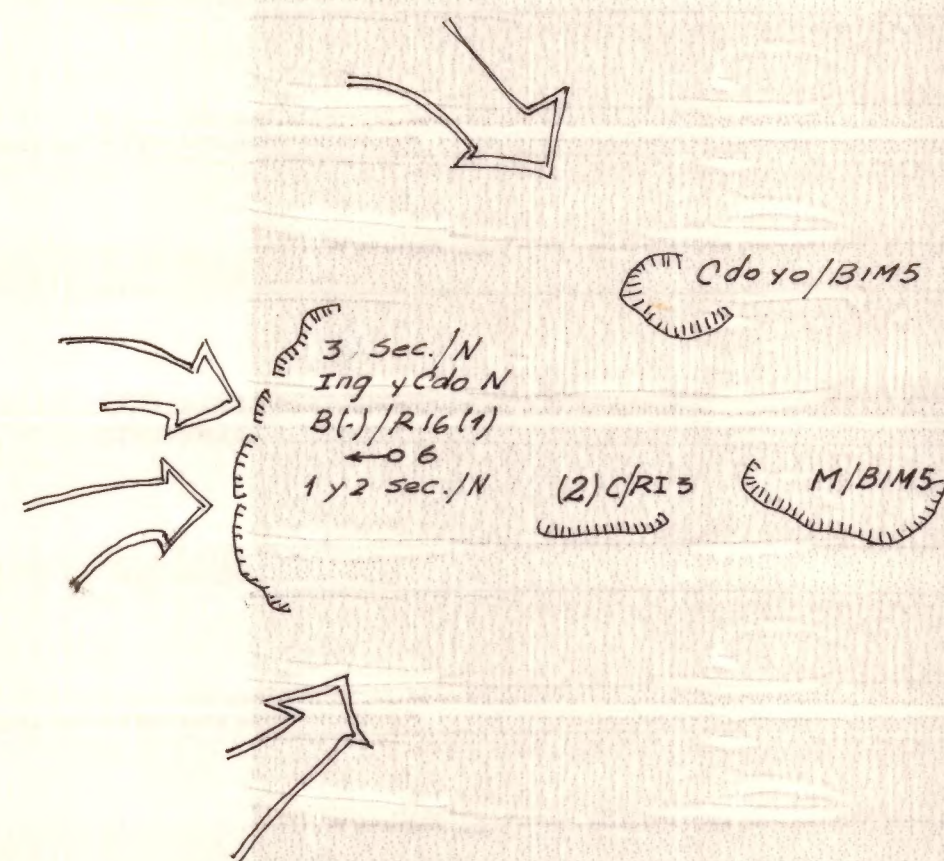 Cdo yo/BIM5
3 Sec./N
Ing y Cdo N
B(-)/R I6 (1)
6
1 y 2 sec./N
(2) C/RI 3
M/BIM5